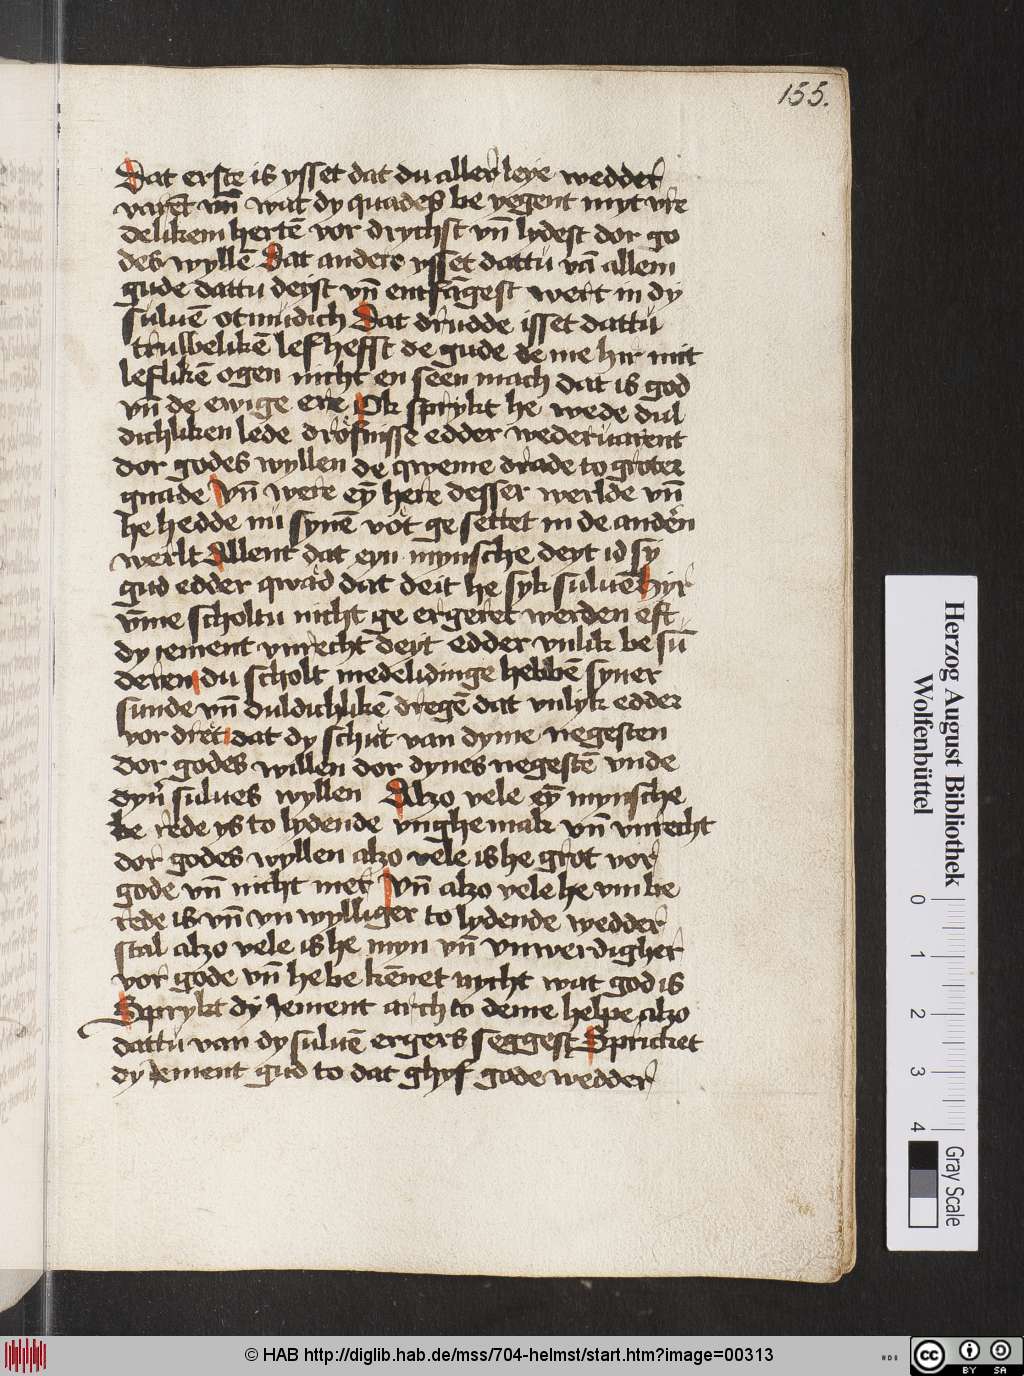 155.
Dat erste is ysset dat du allerleye wedder
varēt vn̄ wat dy quades be yegent myt vre
delikem hertē vor drychst vn̄ lydest dor go
des wyllē Dat andere ysset dattu vā allem
gude dattu deyst vn̄ entfāgest wert in dy
suluē otmudich Dat drudde isset dattu
lefhefft de gude de me hir mit
leflikē ogen nicht en seen mach dat is god
vn̄ de ewige ere Ok sprykt he wede dul
dichliken lede drofnisse edder wederuarent
dor godes wyllen de qweme drade to groter
gnade Vn̄ were eyn here desser werlde vn̄
he hedde nu synē vot ge settet in de andern
werlt Allent dat eyn mynsche deyt id sy
gud edder qwad dat deit he syk suluē hyr
vm̄e scholtu nicht ge ergeret werden eft
dy iement vnrecht deyt edder vnlik be sū
deren du scholt medelidinge hebbē syner
sunde vn̄ duldichlikē dregē dat vnlyk edder
vor dret dat dy schut van dyme negesten
dor godes willen dor dynes negestē vnde
dyn̄ sulues wyllen Alzo vele eyn mynsche
be rede ys to lydende vnghemak vn̄ vnrecht
dor godes wyllen alzo vele is he grot vor
gode vn̄ nicht mer Vn̄ alzo vele he vmbe
rede is vn̄ vn wylliger to lydende wedder
stal alzo vele is he myn vn̄ vnwerdigher
vor gode vn̄ he be kēnet nycht wat god is
Sprykt dy iement arch to deme helpe alzo
dattu van dy suluē ergers seggest Spricket
dy iement gud to dat ghyf gode wedder
Herzog August Bibliothek
Wolfenbüttel
0 1 2 3 4
Gray Scale
© HAB http://diglib.hab.de/mss/704-helmst/start.htm?image=00313
HAB
cc BY SA